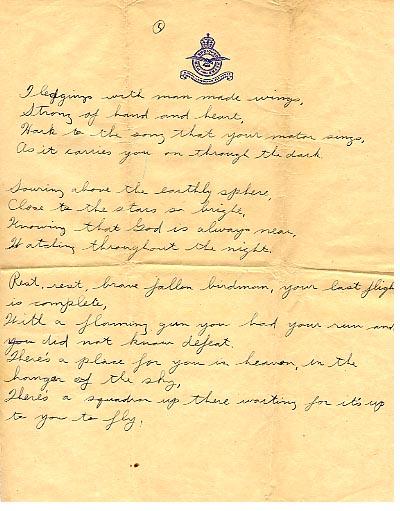 5
Fledglings with man made wings,
Strong of hand and heart,
Hark to the song that your motor sings,
As it carries you on through the dark

Souring above the earthly sphere,
Close to the stars so bright,
Knowing that God is always near,
Watching throughout the night.

Rest, rest, brave fallen birdman, your last fligh
is complete,
With a flaming gun you had your run and
you did not know defeat,
There's a place for you in heaven, in the
hanger of the sky,
There's a squadron up there waiting for it's up
to you to fly.